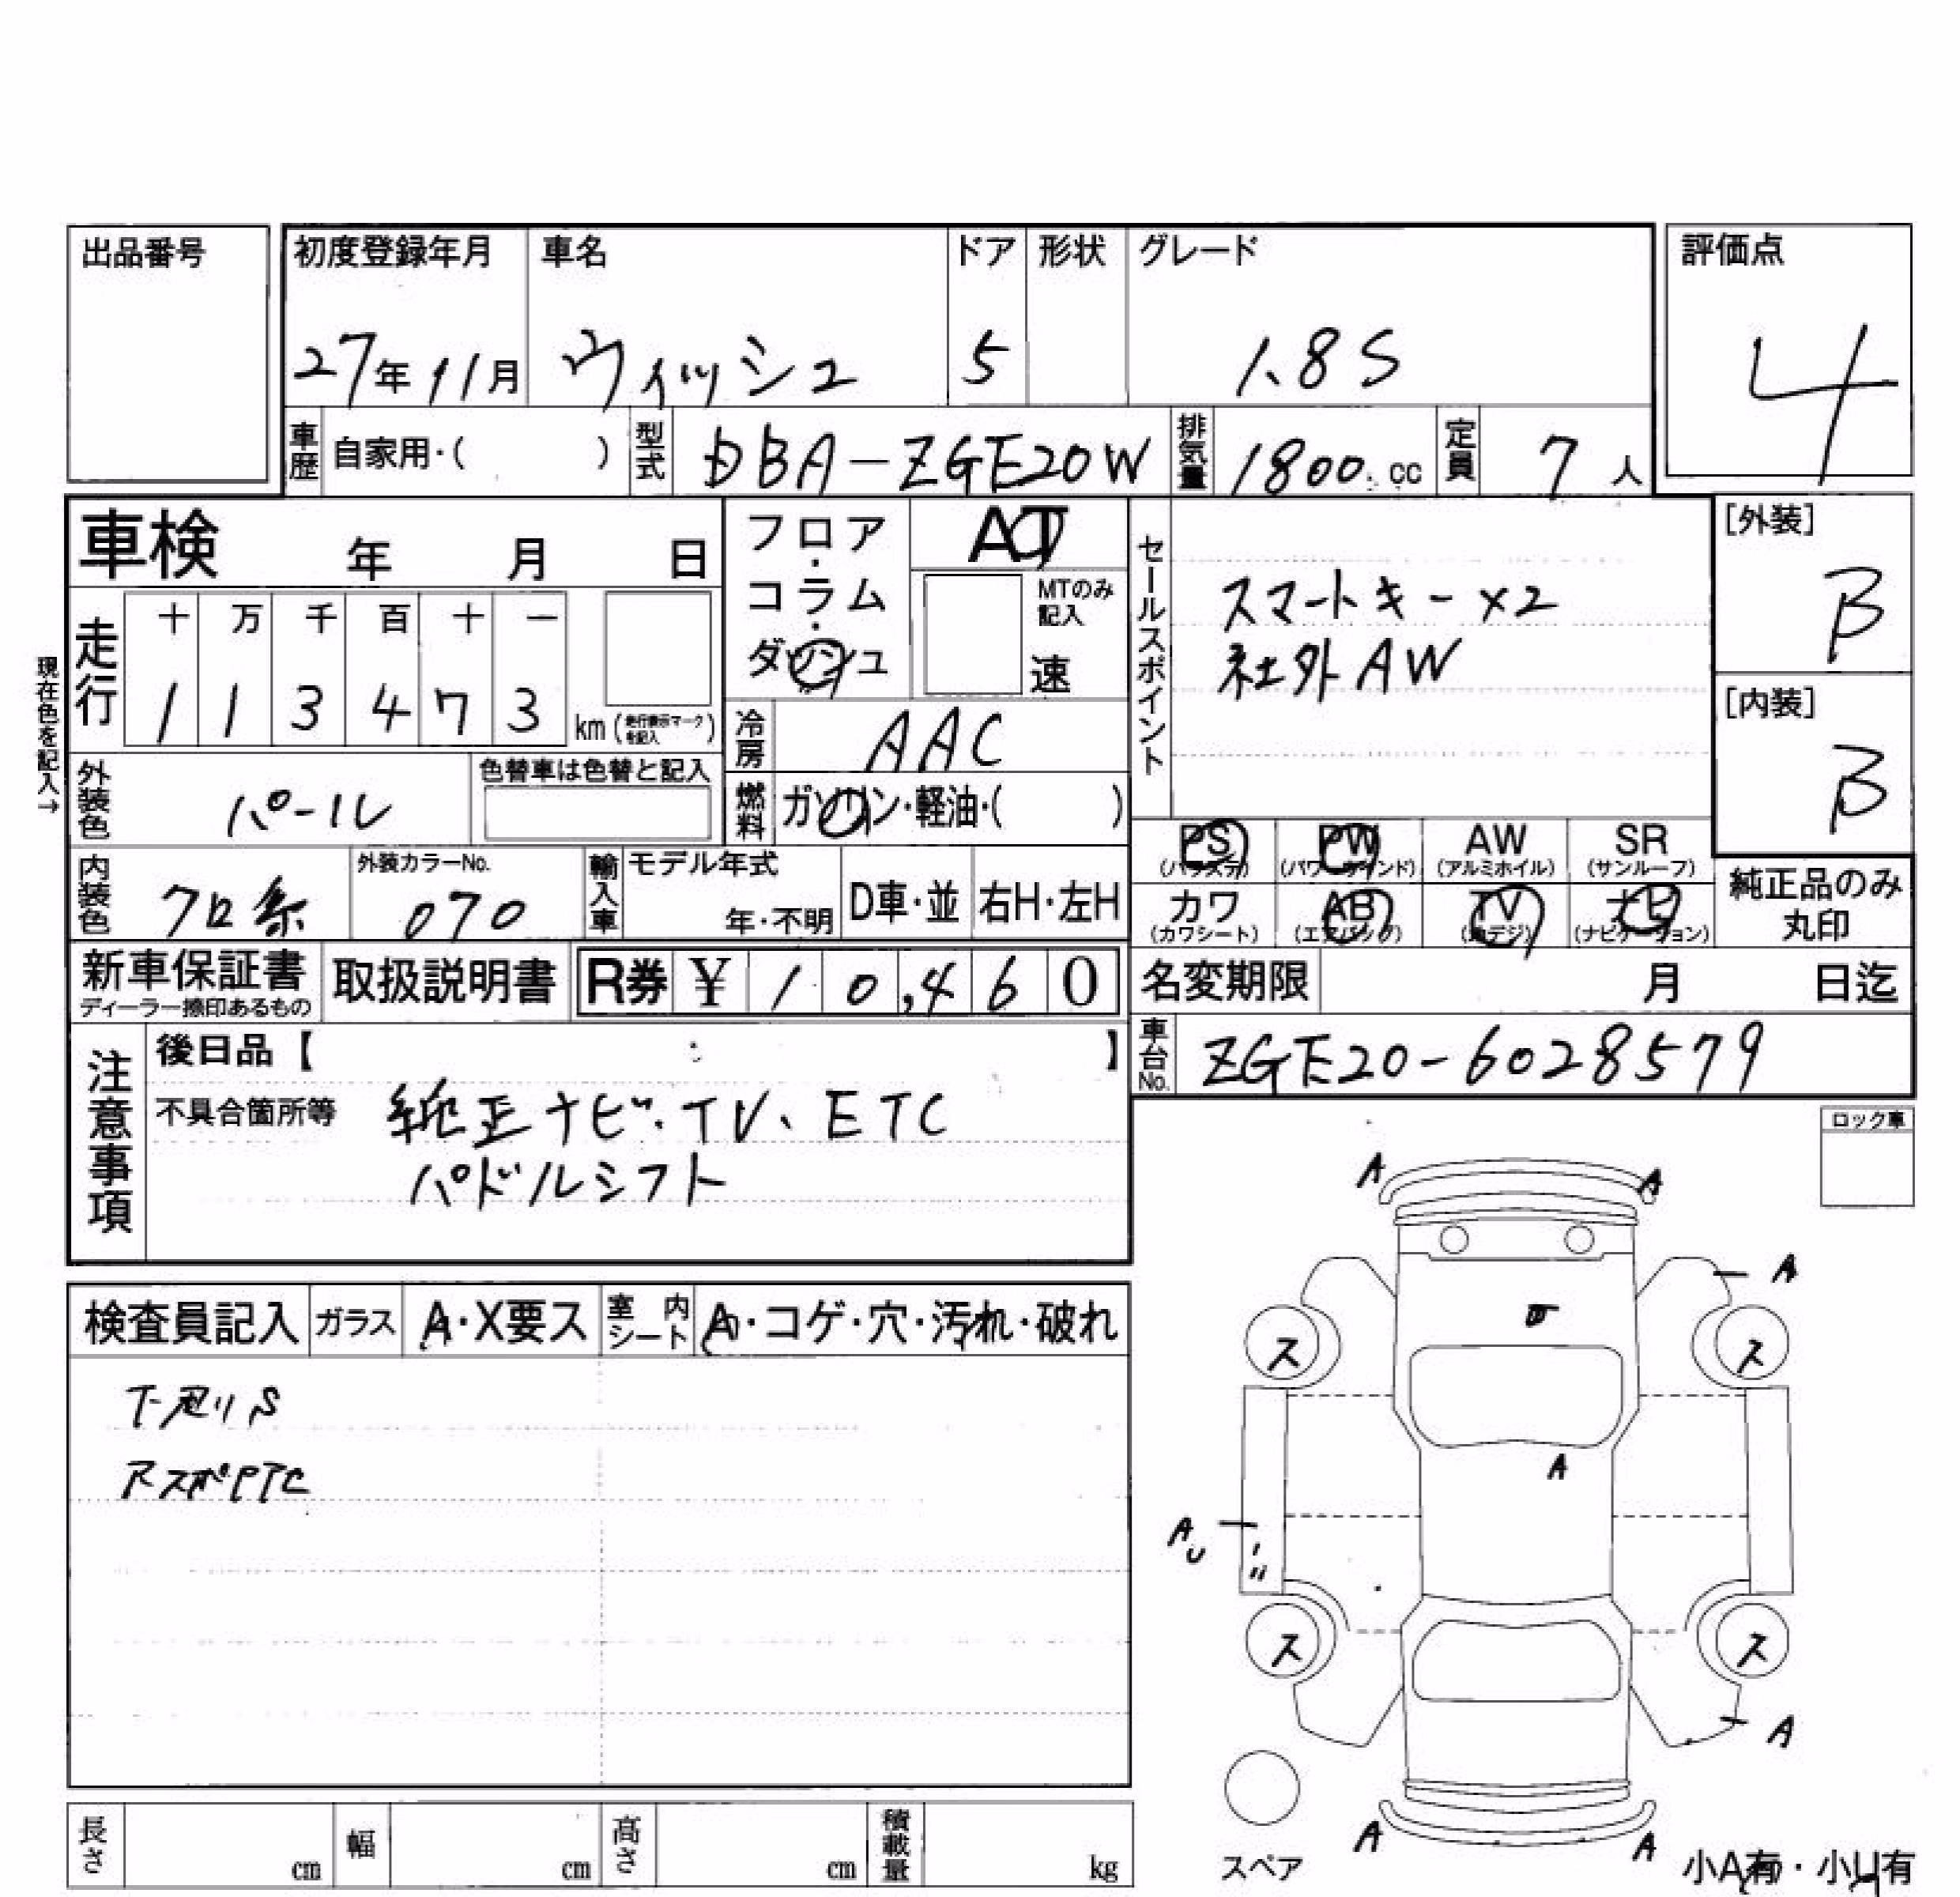 出品番号
初度登録年月 車名 ドア 形状 グレード
評価点
27年11月 ウィッシュ 5 1.8S
4
車歴 自家用・( ) 型式 DBA-ZGE20W 排気量 1800 cc 定員 7人
車検 年 月 日
フロア・コラム・ダッシュ
AT
MTのみ記入
速
セールスポイント
スマートキー×2
社外AW
[外装]
B
[内装]
B
現在色を記入→
走行 十 万 千 百 十 一
1 1 3 4 7 3 km (走行表示マークを記入)
冷房 AAC
外装色 パール 色替車は色替と記入
燃料 ガソリン・軽油・( )
PS (パワステ) PW (パワーウインド) AW (アルミホイル) SR (サンルーフ)
カワ (カワシート) AB (エアバッグ) TV (地デジ) ナビ (ナビゲーション)
純正品のみ
丸印
内装色 クロ系 外装カラーNo. 070
輸入車 モデル年式 年・不明 D車・並 右H・左H
新車保証書 ディーラー捺印あるもの
取扱説明書
R券 ¥10,460
名変期限 月 日迄
車台No. ZGE20-6028579
注意事項
後日品【 】
不具合箇所等 純正ナビ・TV、ETC
パドルシフト
ロック車
A A
A
ス ス
A
AU
ス ス
A
A A
スペア
小A有・小U有
検査員記入 ガラス A・X要ス 室内シート A・コゲ・穴・汚れ・破れ
下廻りS
長さ cm 幅 cm 高さ cm 積載量 kg